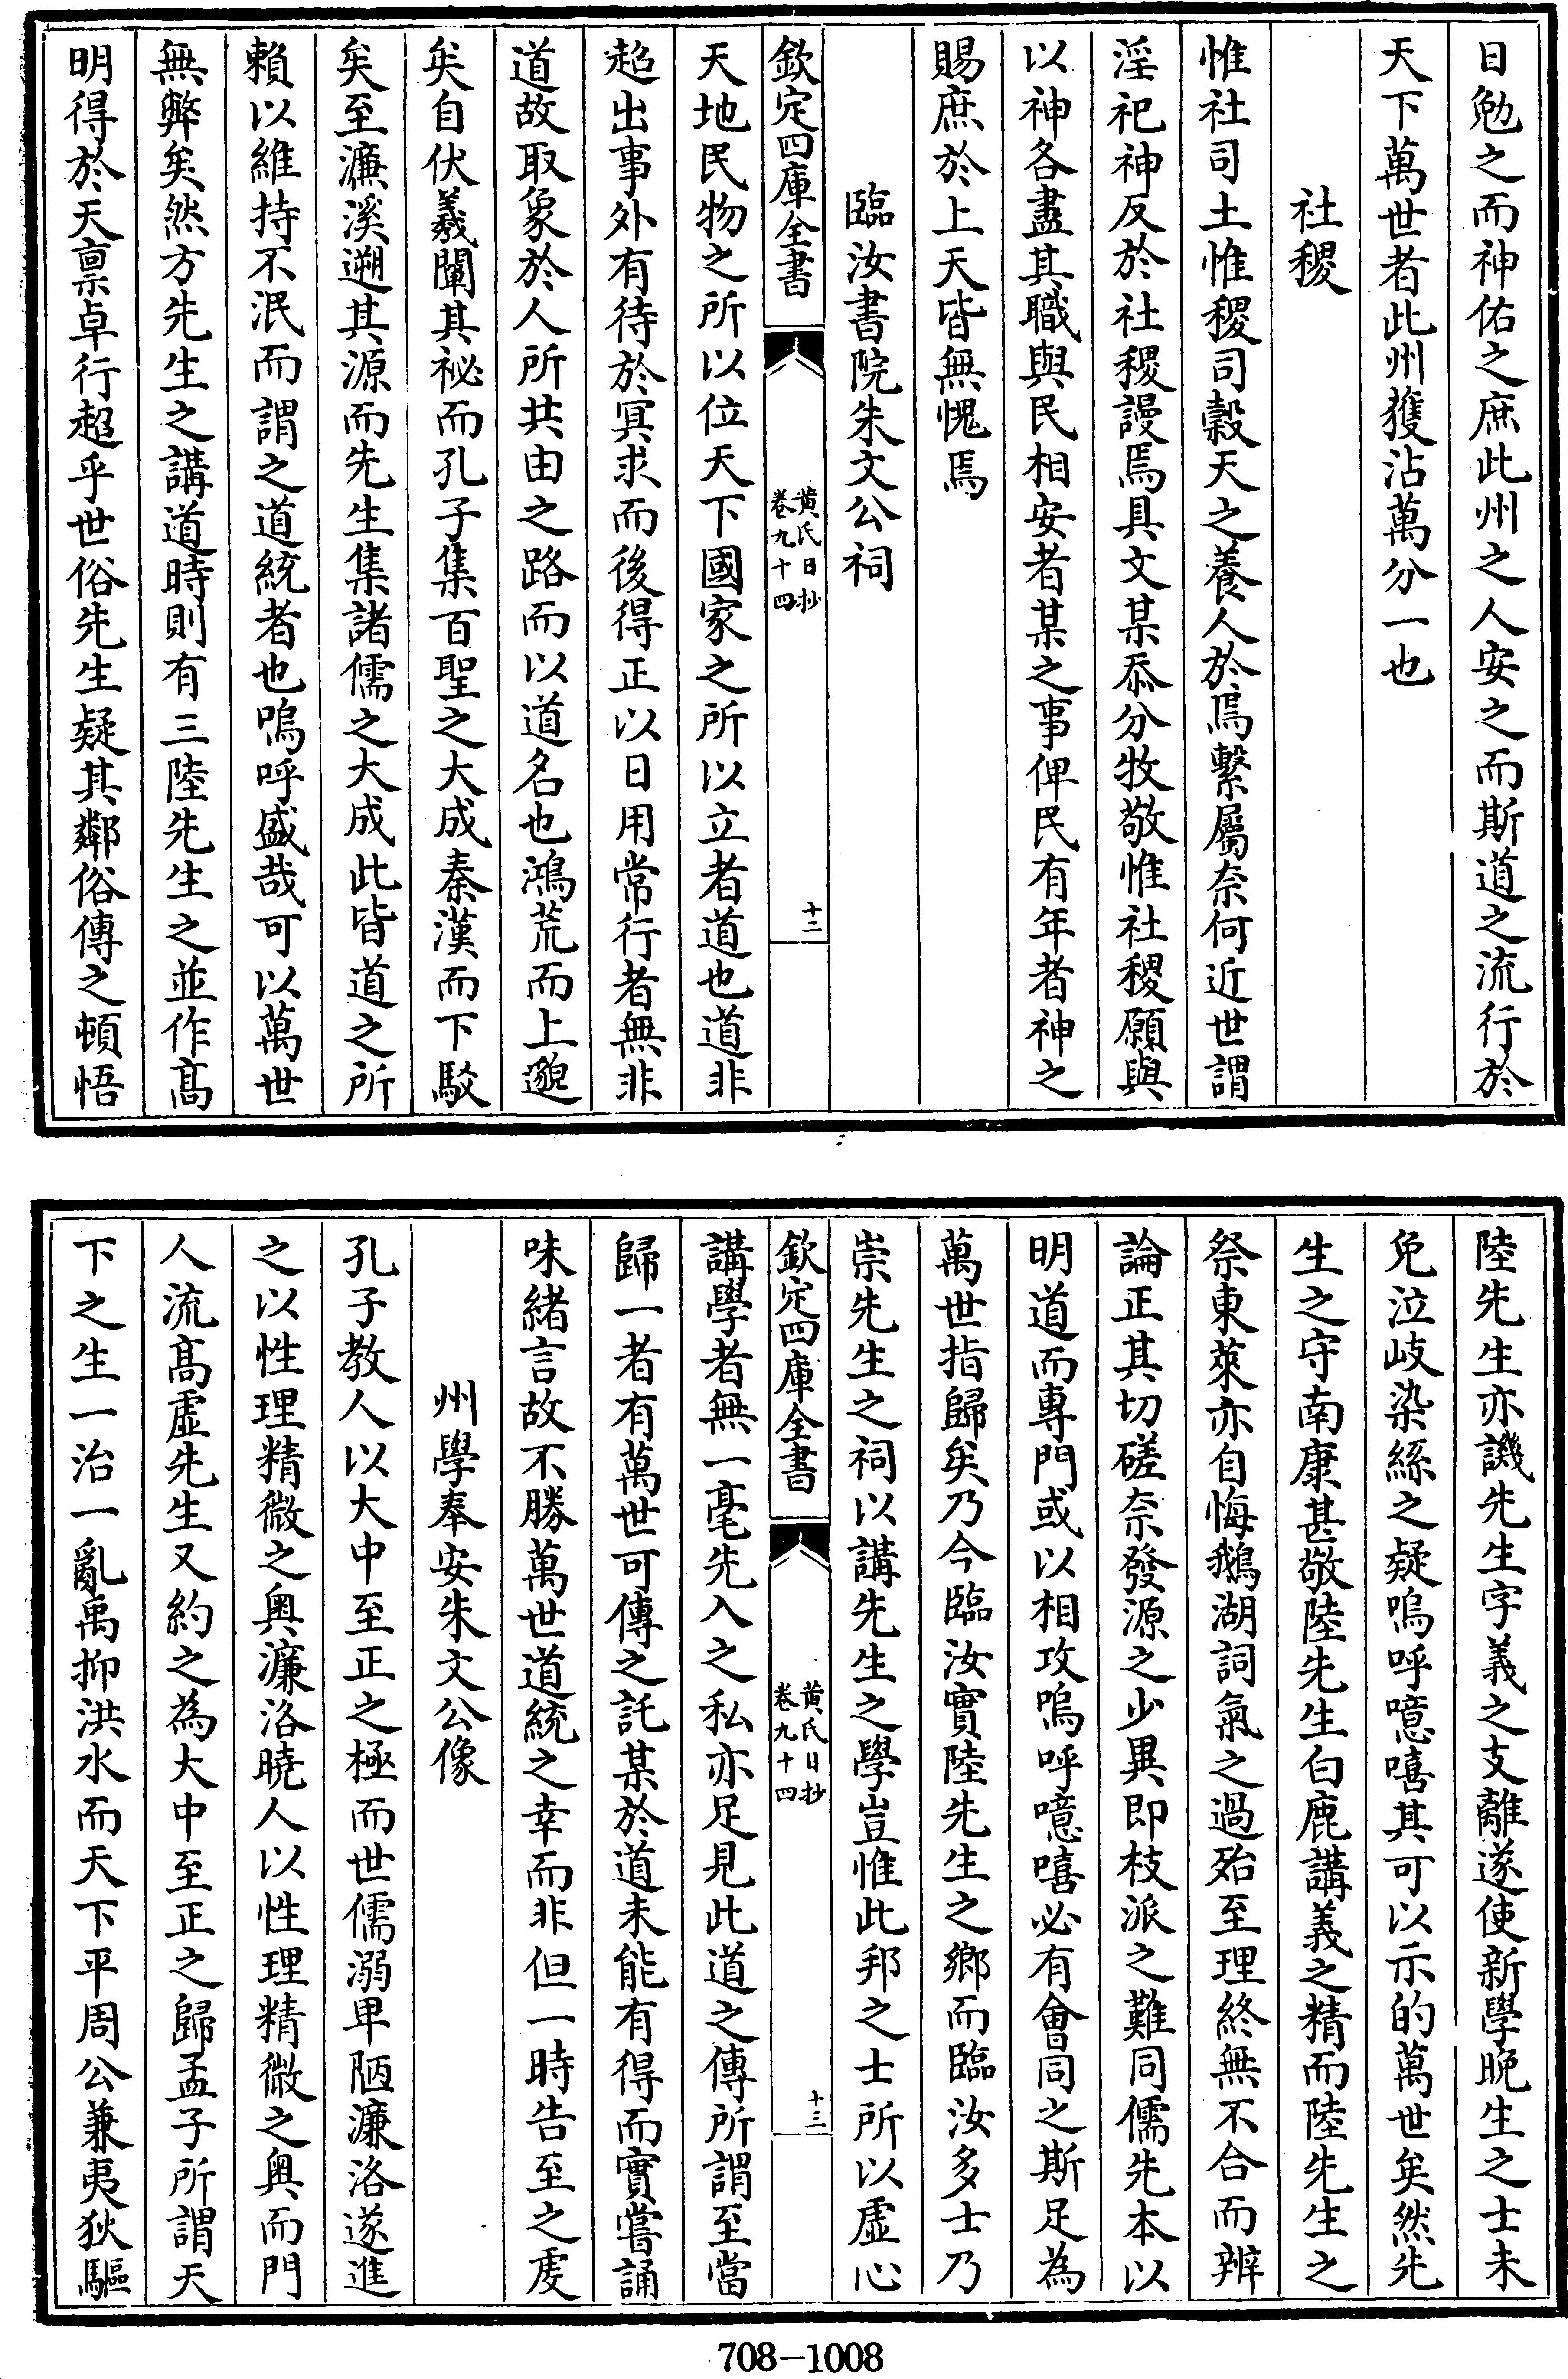 日勉之而神佑之庶此州之人安之而斯道之流行於
天下萬世者此州獲沾萬分一也
社稷
惟社司土惟稷司榖天之養人於焉繫屬奈何近世謂
淫祀神反於社稷謾焉具文某忝分牧敬惟社稷願與
以神各盡其職與民相安者某之事俾民有年者神之
賜庶於上天皆無愧焉
臨汝書院朱文公祠
欽定四庫全書
黄氏日抄
卷九十四
十二
天地民物之所以位天下國家之所以立者道也道非
超出事外有待於冥求而後得正以日用常行者無非
道故取象於人所共由之路而以道名也鴻荒而上邈
矣自伏羲闡其祕而孔子集百聖之大成秦漢而下駁
矣至濂溪遡其源而先生集諸儒之大成此皆道之所
賴以維持不泯而謂之道統者也嗚呼盛哉可以萬世
無弊矣然方先生之講道時則有三陸先生之並作髙
明得於天禀卓行超乎世俗先生疑其鄰俗傳之頓悟
陸先生亦譏先生字義之支離遂使新學晚生之士未
免泣岐染絲之疑嗚呼噫嘻其可以示的萬世矣然先
生之守南康甚敬陸先生白鹿講義之精而陸先生之
祭東萊亦自悔鵝湖詞氣之過殆至理終無不合而辨
論正其切磋奈發源之少異即枝派之難同儒先本以
明道而專門或以相攻嗚呼噫嘻必有會同之斯足為
萬世指歸矣乃今臨汝實陸先生之鄉而臨汝多士乃
崇先生之祠以講先生之學豈惟此邦之士所以虛心
欽定四庫全書
黄氏日抄
卷九十四
十三
講學者無一毫先入之私亦足見此道之傳所謂至當
歸一者有萬世可傳之託某於道未能有得而實嘗誦
味緒言故不勝萬世道統之幸而非但一時告至之䖍
州學奉安朱文公像
孔子教人以大中至正之極而世儒溺卑陋濂洛遂進
之以性理精微之奥濂洛曉人以性理精微之奥而門
人流髙虛先生又約之為大中至正之歸孟子所謂天
下之生一治一亂禹抑洪水而天下平周公兼夷狄驅
708-1008